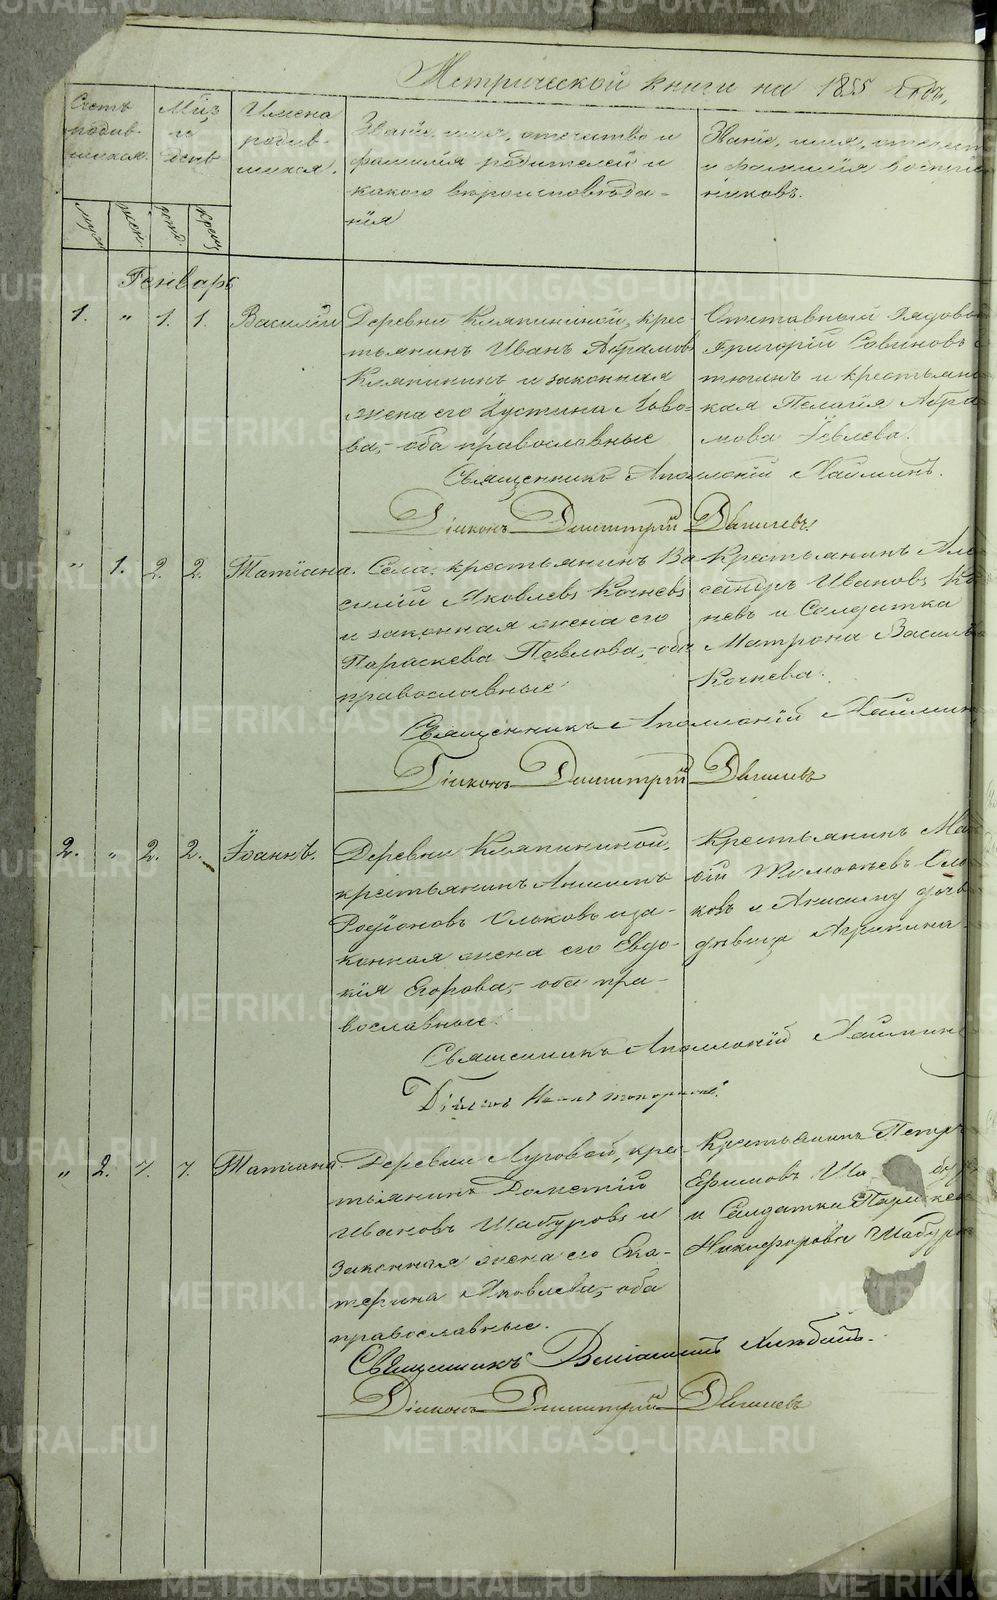 Метрической книги на 1855 годъ,
Счетъ родив-шихся.
Мѣз и день
Имена родив-шихся.
Званіе, имя, отчество и фамилія родителей и какого вѣроисповѣда-нія
Званіе, имя, отчест и фамилія воспрі никовъ.
муж
жен.
рожд.
крещ
Генварь
1. " 1. 1. Василій
Деревни Кляпининой, крес-
тьянинъ Иванъ Абрамовъ
Кляпининъ и законная
жена его Іустина
ва, оба православные
Отставный Рядовы
Григорій Савиновъ
и крестьянс
кая Пелагія Абра
мова Іевлева.
Священникъ Аполлоній
Діаконъ Димитрій
" 1. 2. 2. Татіана.
Села, крестьянинъ Ва
силій Яковлевъ Кочневъ
и законная жена его
Параскева Павлова, оба
православные
Крестьянинъ Але
сандръ Ивановъ Ко
невъ и Солдатка
Матрона Василь
Кочнева.
Священникъ Аполлоній
Діаконъ Димитрій
2. " 2. 2. Іоаннъ.
Деревни Кляпининой,
крестьянинъ Анисимъ
Родіоновъ Ольковъ и за-
конная жена его Евдо-
кія Егорова, оба пра-
вославные.
Крестьянинъ Мат
ѳій Тимоѳѣевъ Оль
ковъ и Анисиму дочь
дѣвица Агрипина
Священникъ Аполлоній
Діаконъ
" 2. 7. 7. Татіана.
Деревни Луговой, крес
тьянинъ Дометій
Ивановъ Шабуровъ и
законная жена его Ека-
терина Яковлева, оба
православные.
Крестьянинъ Петръ
Ефимовъ Ша бур
и Солдатка Параскев
Никифорова Шабуро
Священникъ Веніаминъ
Діаконъ Димитрій
METRIKI.GASO-URAL.RU